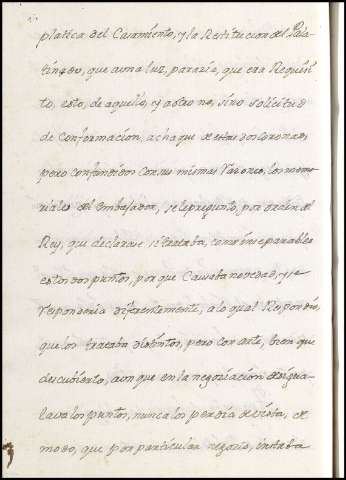 platica del Casamiento, y la Restitucion del Pala-
tinado, que a una luz, parazio, que era Requisi-
to, esto, de aquello, y a otro no, sino solicitud
de Conformacion, achaque de estas dos Coronas,
pero confundidos con sus mismas razones, los memo-
riales del Embajador, se le pregunto, por orden del
Rey, que declarase si trataba, como inseparables
estos dos puntos, por que Causaba novedad, y se
responderia diferentemente, a lo qual Respondio,
que los trataba distintos, pero con arte, bien que
descubierto, aunque en la negociacion desigua-
lava los puntos, nunca los perdia de vista, de
modo, que por particular negocio, instaba